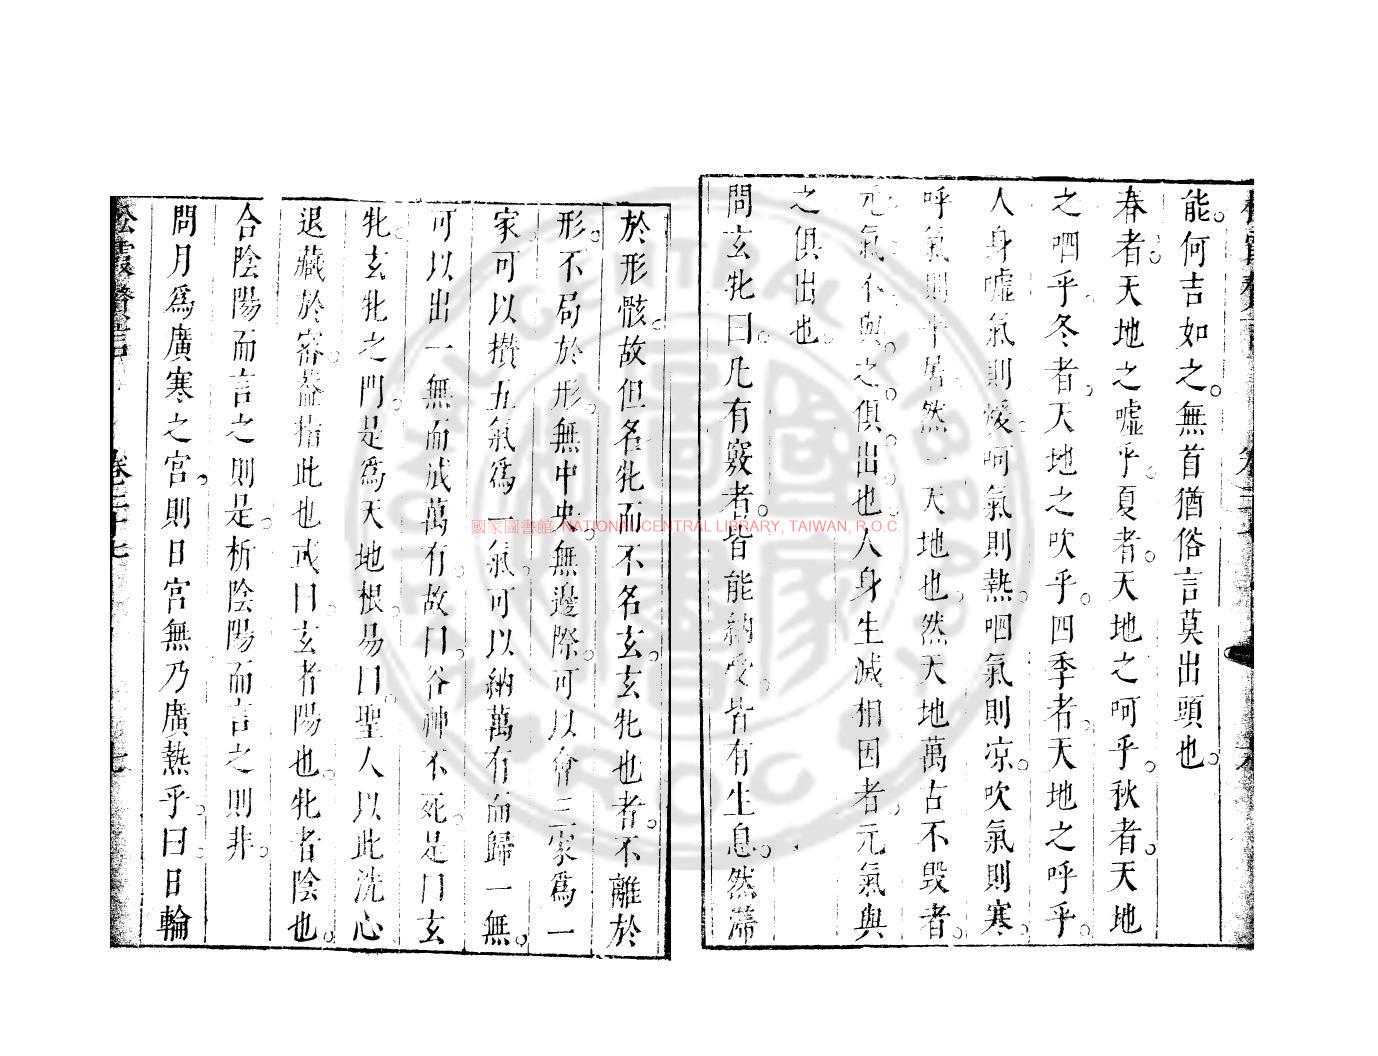 能。何吉如之。無首猶俗言莫出頭也。
春者。天地之噓乎。夏者。天地之呵乎。秋者天地
之呬乎。冬者。天地之吹乎。四季者。天地之呼乎。
人身噓氣則煖。呵氣則熱。呬氣則凉。吹氣則寒。
呼氣則平。居然一天地也。然天地萬古不毀者。
元氣不與之俱出也。人身生滅相因者。元氣與
之俱出也。
問玄牝曰。凡有竅者。皆能納受。皆有生息。然滯
於形骸。故但名牝而不名玄。玄牝也者。不離於
形。不局於形。無中央。無邊際。可以會三家為一
家。可以攢五氣為一氣。可以納萬有而歸一無。
可以出一無而成萬有。故曰。谷神不死。是曰玄
牝。玄牝之門。是為天地根。易曰。聖人以此洗心
退藏於密。蓋指此也。或曰。玄者陽也。牝者陰也。
合陰陽而言之則是。析陰陽而言之則非。
問月為廣寒之宮。則日宮無乃廣熱乎。曰。日輪
卷二十七
七
國家圖書館 NATIONAL CENTRAL LIBRARY, TAIWAN, R.O.C.